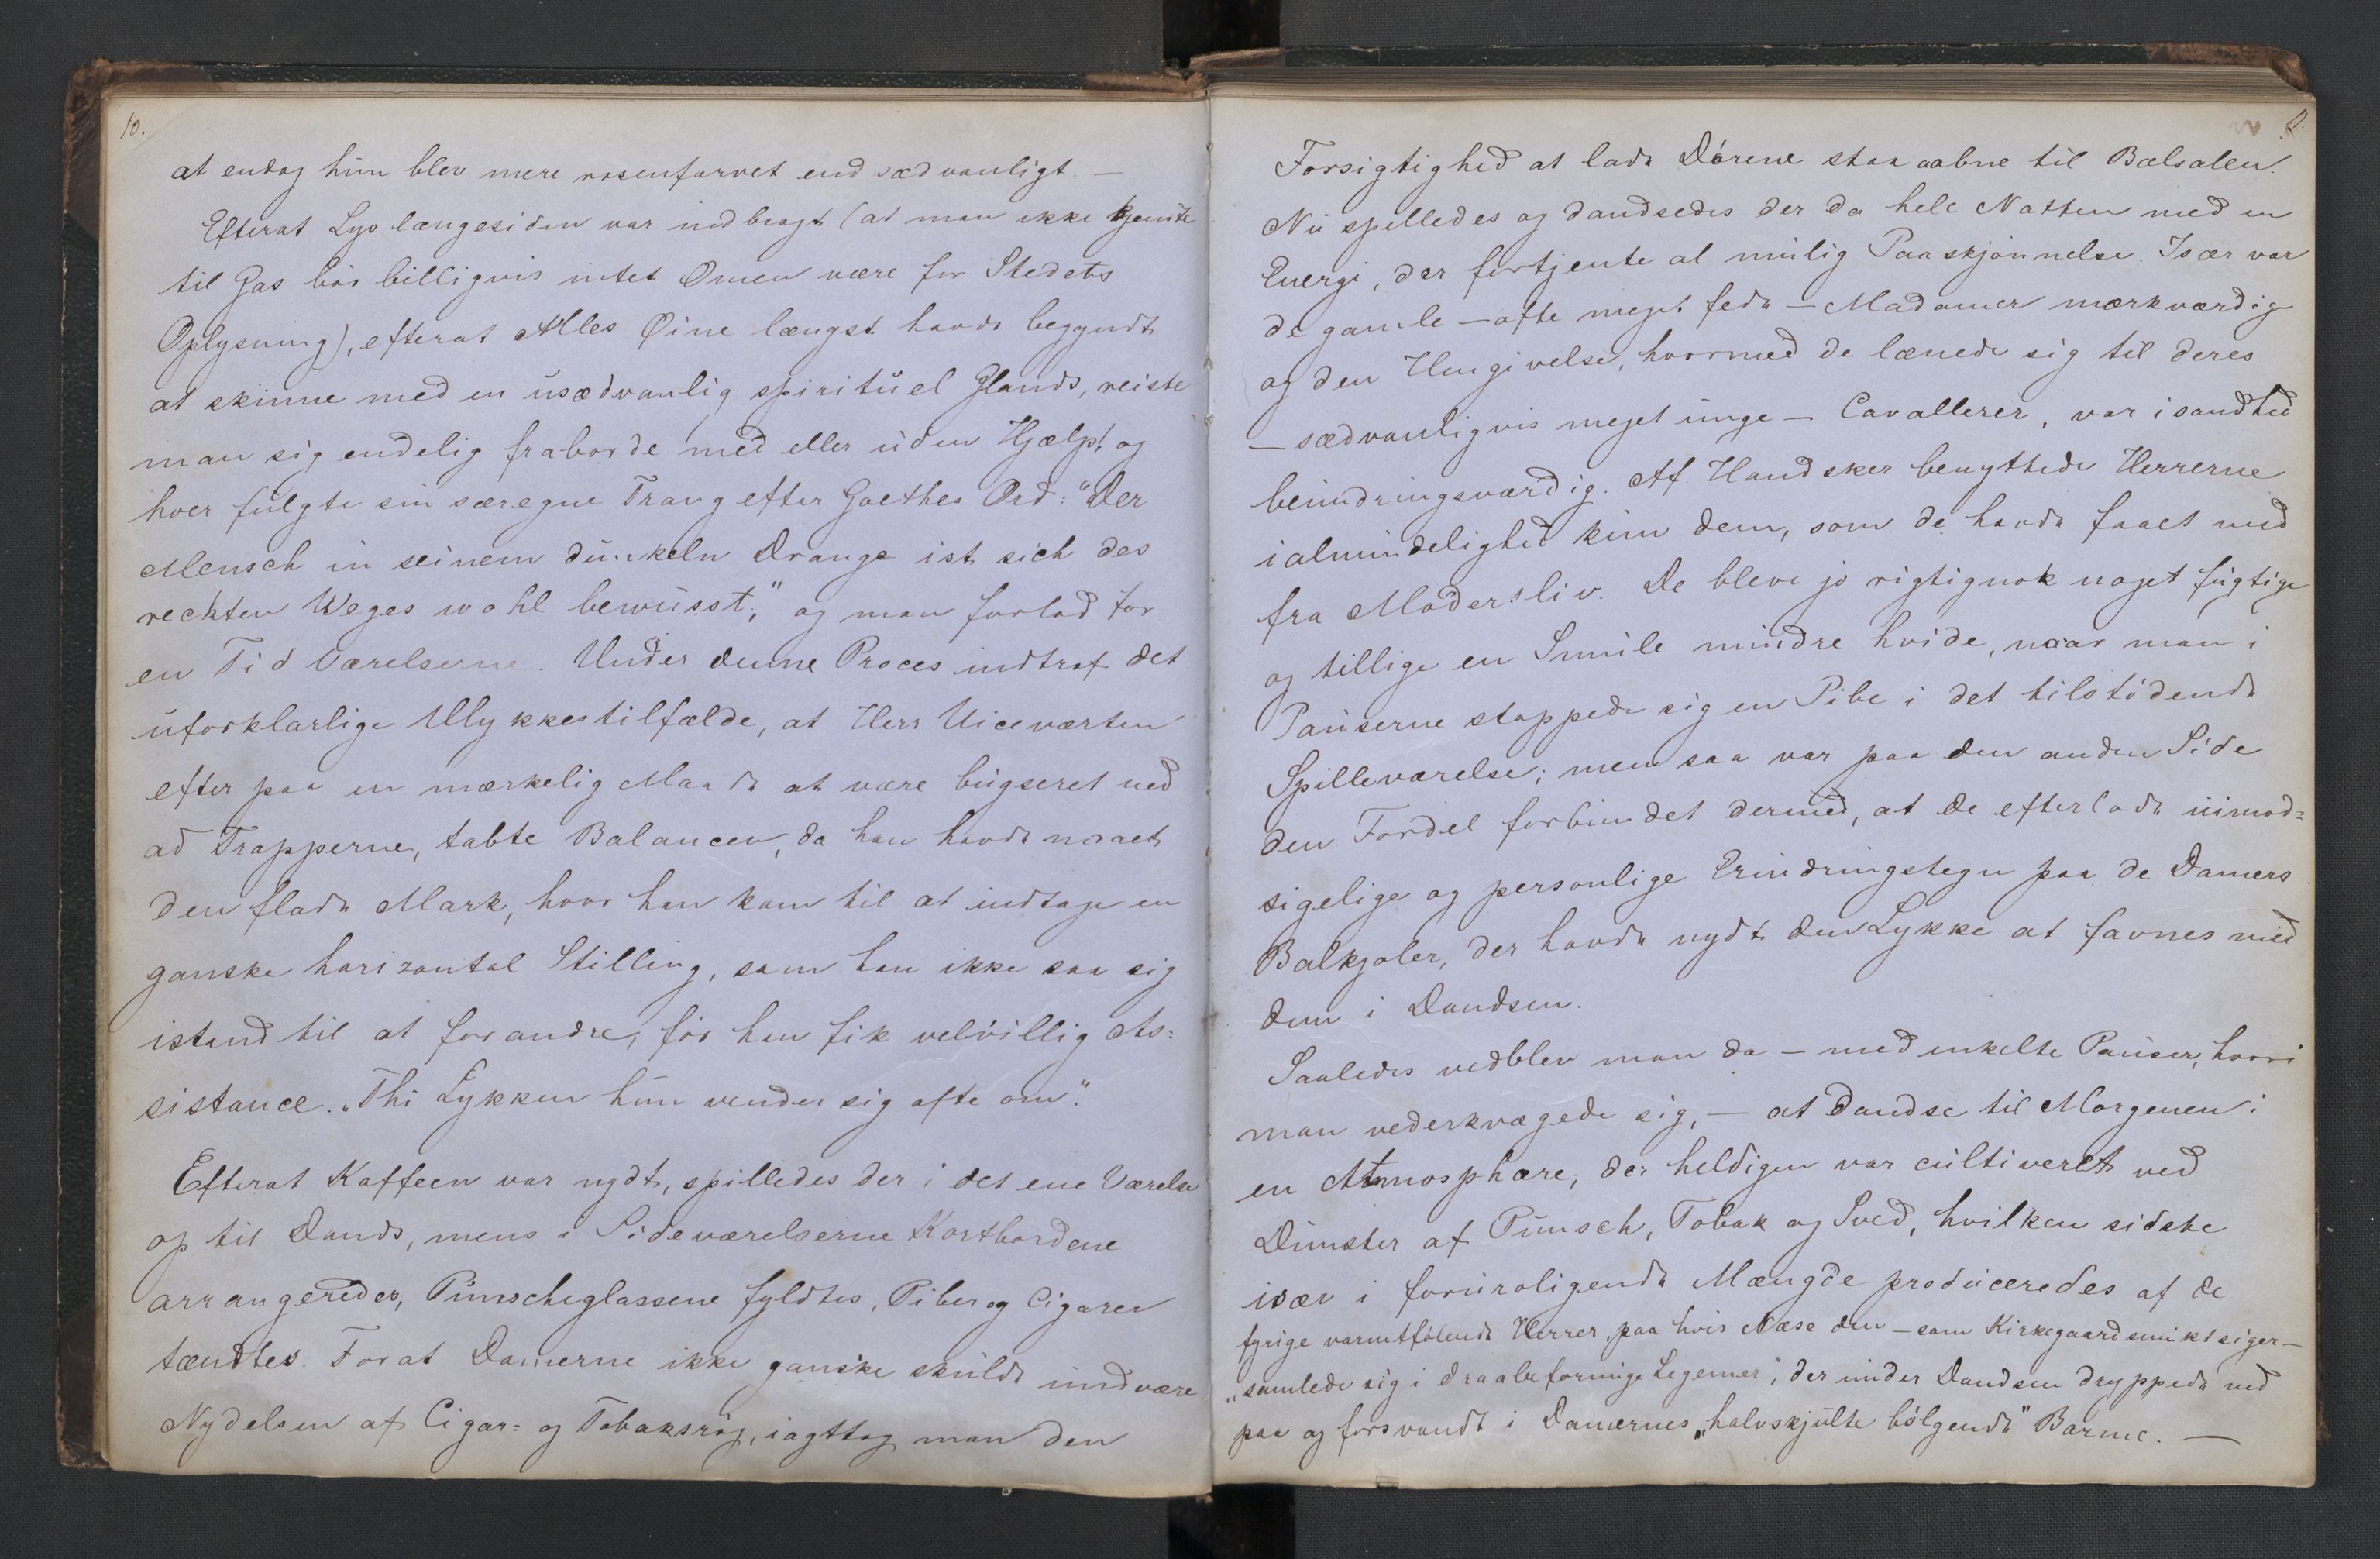 10.
at endog hun blev mere rosenfarvet end sædvanligt. —
Efterat Lys længesiden var indbragt (at man ikke kjendte
til Gas bör billigvis intet Omen være for Stedets
Oplysning), efterat Alles Øine længst havde begyndt
at skinne med en usædvanlig spirituel Glands, reiste
man sig endelig fraborde med eller uden Hjælp, og
hver fulgte sin særegne Trang efter Goethes Ord: "Der
Mensch in seinem dunkeln Drange ist sich des
rechten Weges wohl bewusst," og man forlod for
en Tid Værelserne. Under denne Proces indtraf det
uforklarlige Ulykkestilfælde, at Herr Viceværten
efter paa en mærkelig Maade at være bugseret ned
ad Trapperne, tabte Balancen, da han havde naaet
den flade Mark, hvor han kom til at indtage en
ganske horizontal Stilling, som han ikke saa sig
istand til at forandre, för han fik velvillig As=
sistance. „Thi Lykken hun vender sig ofte om".
Efterat Kaffeen var nydt, spilledes der i det ene Værelse
op til Dands, mens i Sideværelserne Kortbordene
arrangeredes, Punscheglassene fyldtes, Piber og Cigarer
tændtes. Forat Damerne ikke ganske skulde undvære
Nydelsen af Cigar= og Tobaksrög, iagttog man den
Forsigtighed at lade Dörene staa aabne til Balsalen.
Nu spilledes og dandsedes der da hele Natten med en
Energi, der fortjente al mulig Paaskjönnelse. Især var
de gamle — ofte meget fede — Madamer mærkværdige
og den Hengivelse, hvormed de lænede sig til deres
— sædvanligvis meget unge — Cavallerer, var isandhed
beundringsværdig. Af Handsker benyttede Herrerne
ialmindelighed kun dem, som de havde faaet med
fra Modersliv. De bleve jo rigtignok noget fugtige
og tillige en Smule mindre hvide, naar man i
Pauserne stoppede sig en Pibe i det tilstödende
Spilleværelse; men saa var paa den anden Side
den Fordel forbundet dermed, at de efterlode uimod=
sigelige og personlige Erindringstegn paa de Damers
Balkjoler, der havde nydt den Lykke at favnes med
dem i Dandsen.
Saaledes vedblev man da — med enkelte Pauser, hvori
man vederkvægede sig, — at dandse til Morgenen i
en Atmosphære, der heldigen var cultiveret ved
Dunster af Punsch, Tobak og Sved, hvilken sidste
især i foruroligende Mængde produceredes af de
fyrige varmtfölende Herrer, paa hvis Næse den — som Kirkegaard smukt siger —
„samlede sig i draabeformige Legemer", der under Dandsen dryppede ned
paa og forsvandt i Damernes „halvskjulte bölgende" Barme. —